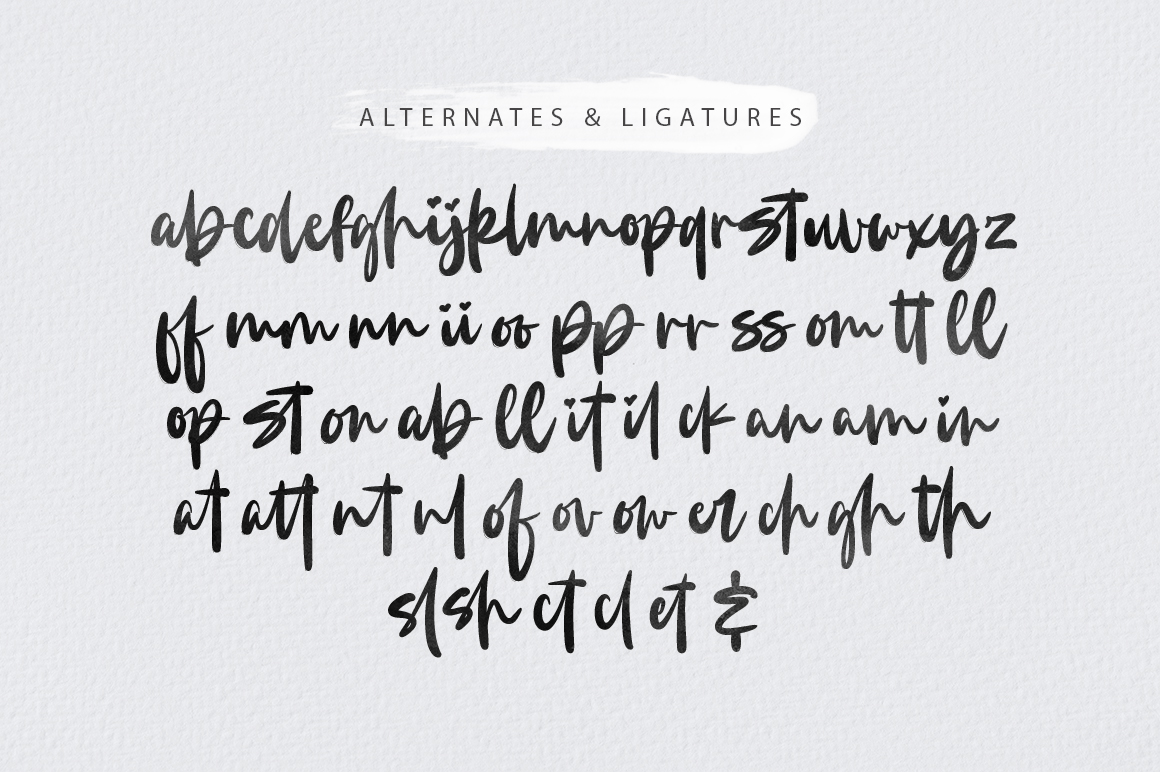 ALTERNATES & LIGATURES
abcdefghijklmnopqrstuvwxyz
ff mm nn ii oo pp rr ss om tt ll
op st on ab ll it il ck an am in
at att nt nl of ov ow er ch gh th
sl sh ct cl et &